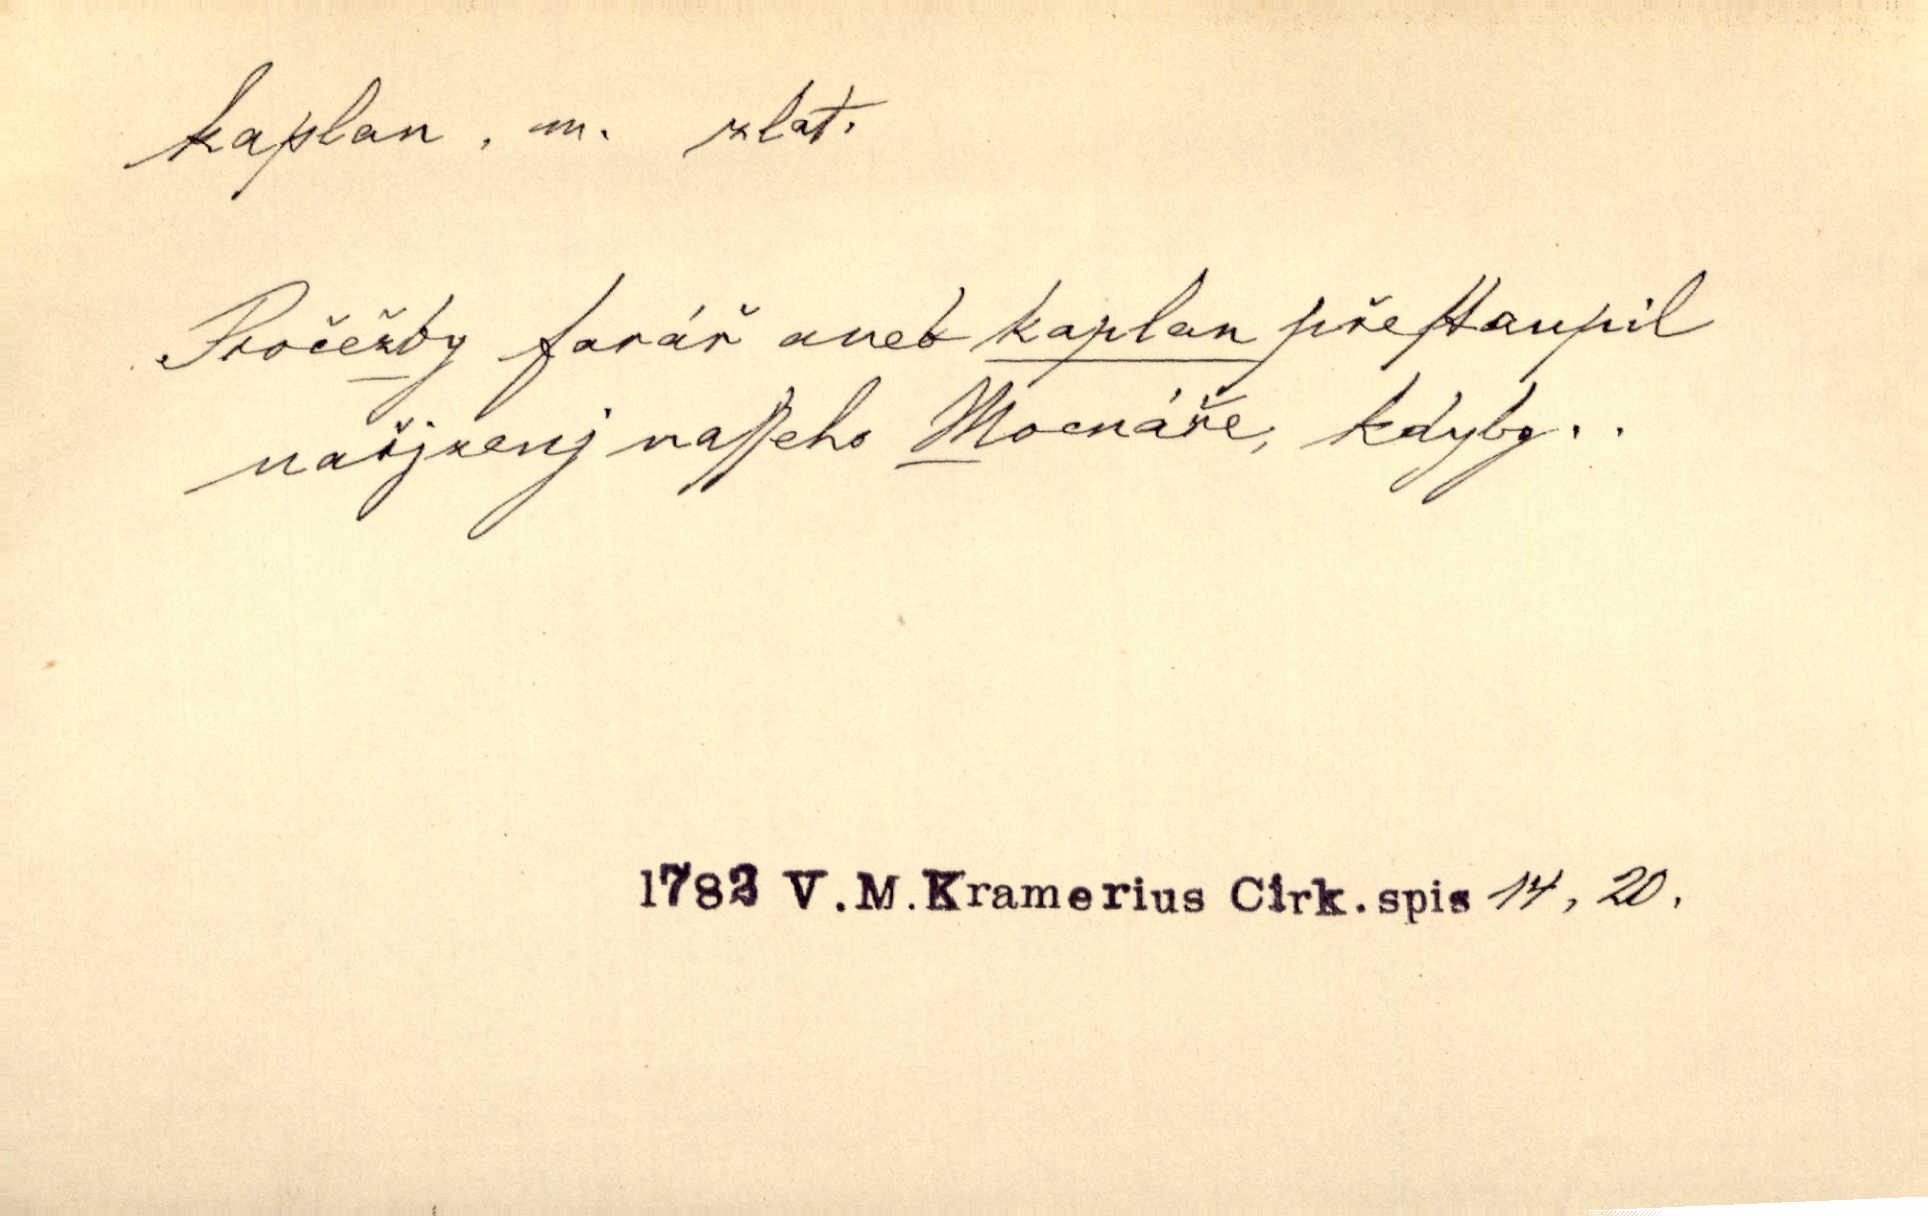 kaplan, m. zlat.
Pročežby farář aneb kaplan přeſtaupil
nařjzenj naſſeho Mocnáře, kdyby..
1782 V.M.Kramerius Cirk.spis 14, 20.